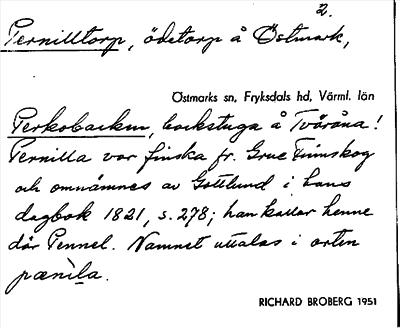 2.
Pernilltorp, ödetorp å Östmark,
Östmarks sn, Fryksdals hd, Värml. län
Perkobacken, backstuga å Tväråna!
Pernilla var finska fr. Grue Finnskog
och omnämnes av Gottlund i hans
dagbok 1821, s. 278; han kallar henne
där Pennel. Namnet uttalas i orten
pænila.
RICHARD BROBERG 1951